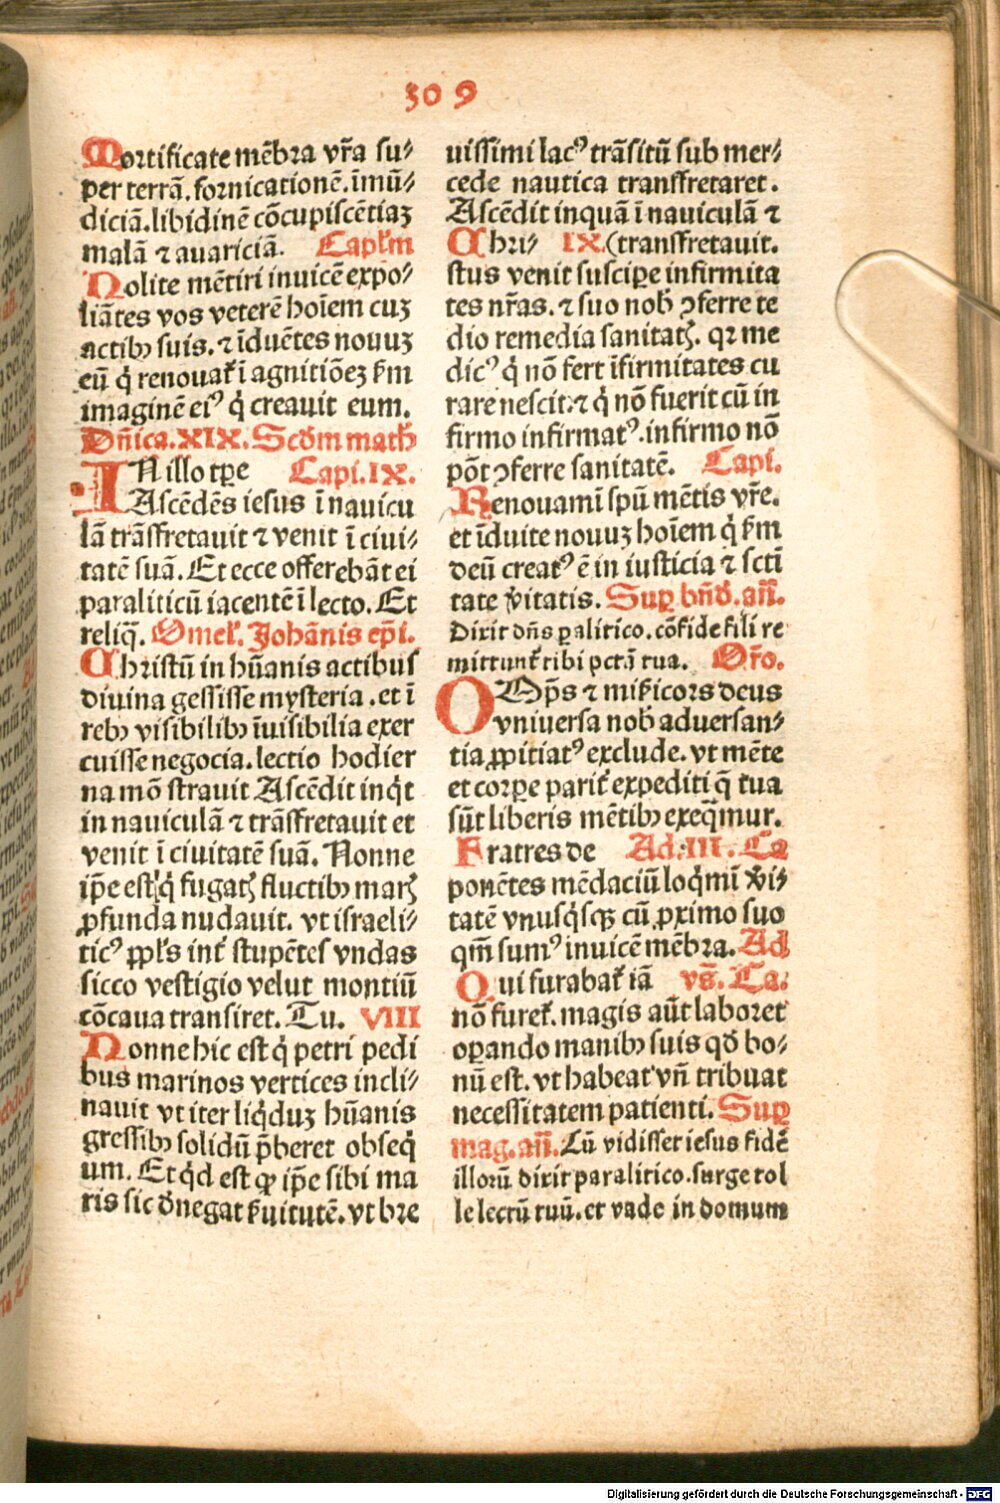 309
Mortificate mēbra vr̄a su⸗
per terrā. fornicationē. īmū⸗
diciā. libidinē cōcupiscētiaꝫ
malā ⁊ auariciā. Capl'm
Nolite mētiri inuicē expo⸗
liātes vos veterē hoīem cuꝫ
actibꝰ suis. ⁊ īduētes nouuꝫ
eū q̇ renouat̛ ī agnitiōeꝫ ẜm
imaginē eiꝰ q̇ creauit eum.
Dn̄ica. XIX. Scd̄m math̛
IN illo tꝑe Capi. IX.
Ascēdēs iesus ī nauicu
lā trāsfretauit ⁊ venit ī ciui⸗
tatē suā. Et ecce offerebāt ei
paraliticū iacentē ī lecto. Et
reliq̄. Omel̛. Johānis ep̄i.
Christū in hūanis actibus
diuina gessisse mysteria. et ī
rebꝰ visibilibꝰ īuisibilia exer
cuisse negocia. lectio hodier
na mōstrauit Ascēdit inq̇t
in nauiculā ⁊ trāsfretauit et
venit ī ciuitatē suā. Nonne
ip̄e est q̇ fugatꝭ fluctibꝰ marꝭ
ꝓfunda nudauit. vt israeli⸗
ticꝰ ppl̛s int̛ stupētes vndas
sicco vestigio velut montiū
cōcaua transiret. Tu. VIII
Nonne hic est q̇ petri pedi
bus marinos vertices incli⸗
nauit vt iter liq̇duꝫ hūanis
gressibꝰ solidū p̄beret obseq̇
um. Et q̇d est ꝙ ip̄e sibi ma
ris sic d̄negat ẜuitutē. vt bre
uissimi lacꝰ trāsitū sub mer⸗
cede nautica transfretaret.
Ascēdit inquā ī nauiculā ⁊
Chri⸗ IX. (transfretauit.
stus venit suscipe infirmita
tes nr̄as. ⁊ suo nob̛ ꝯferre te
dio remedia sanitatꝭ. qꝛ me
dicꝰ q̇ nō fert īfirmitates cu
rare nescit. ⁊ q̇ nō fuerit cū in
firmo infirmatꝰ. infirmo nō
pōt ꝯferre sanitatē. Capi.
Renouamī spū mētis vr̄e.
et īduite nouuꝫ hoīem q̇ ẜm
deū creatꝰ ē in iusticia ⁊ scti
tate v̛itatis. Suꝑ bn̄d̛. an̄.
Dixit dn̄s ꝑalitico. cōfide fili re
mittunt̛ tibi pctā tua. Or̄o.
OOp̄s ⁊ mis̛icors deus
vniuersa nob̛ aduersan⸗
tia ꝓpitiatꝰ exclude. vt mēte
et corꝑe parit̛ expediti q̄ tua
sūt liberis mētibꝰ exeq̄mur.
Fratres de Ad. III. Ca
ponētes mēdaciū loq̇mī v̛i⸗
tatē vnusq̇sqꝫ cū ꝓximo suo
qm̄ sumꝰ inuicē mēbra. Ad
Qui furabat̛ iā vs̄. Ca.
nō furet̛. magis aūt laboret
oꝑando manibꝰ suis qd̛ bo⸗
nū est. vt habeat vn̄ tribuat
necessitatem patienti. Suꝑ
mag. an̄. Cū vidisset iesus fidē
illorū dixit paralitico. surge tol
le lectū tuū. et vade in domum
Digitalisierung gefördert durch die Deutsche Forschungsgemeinschaft - DFG